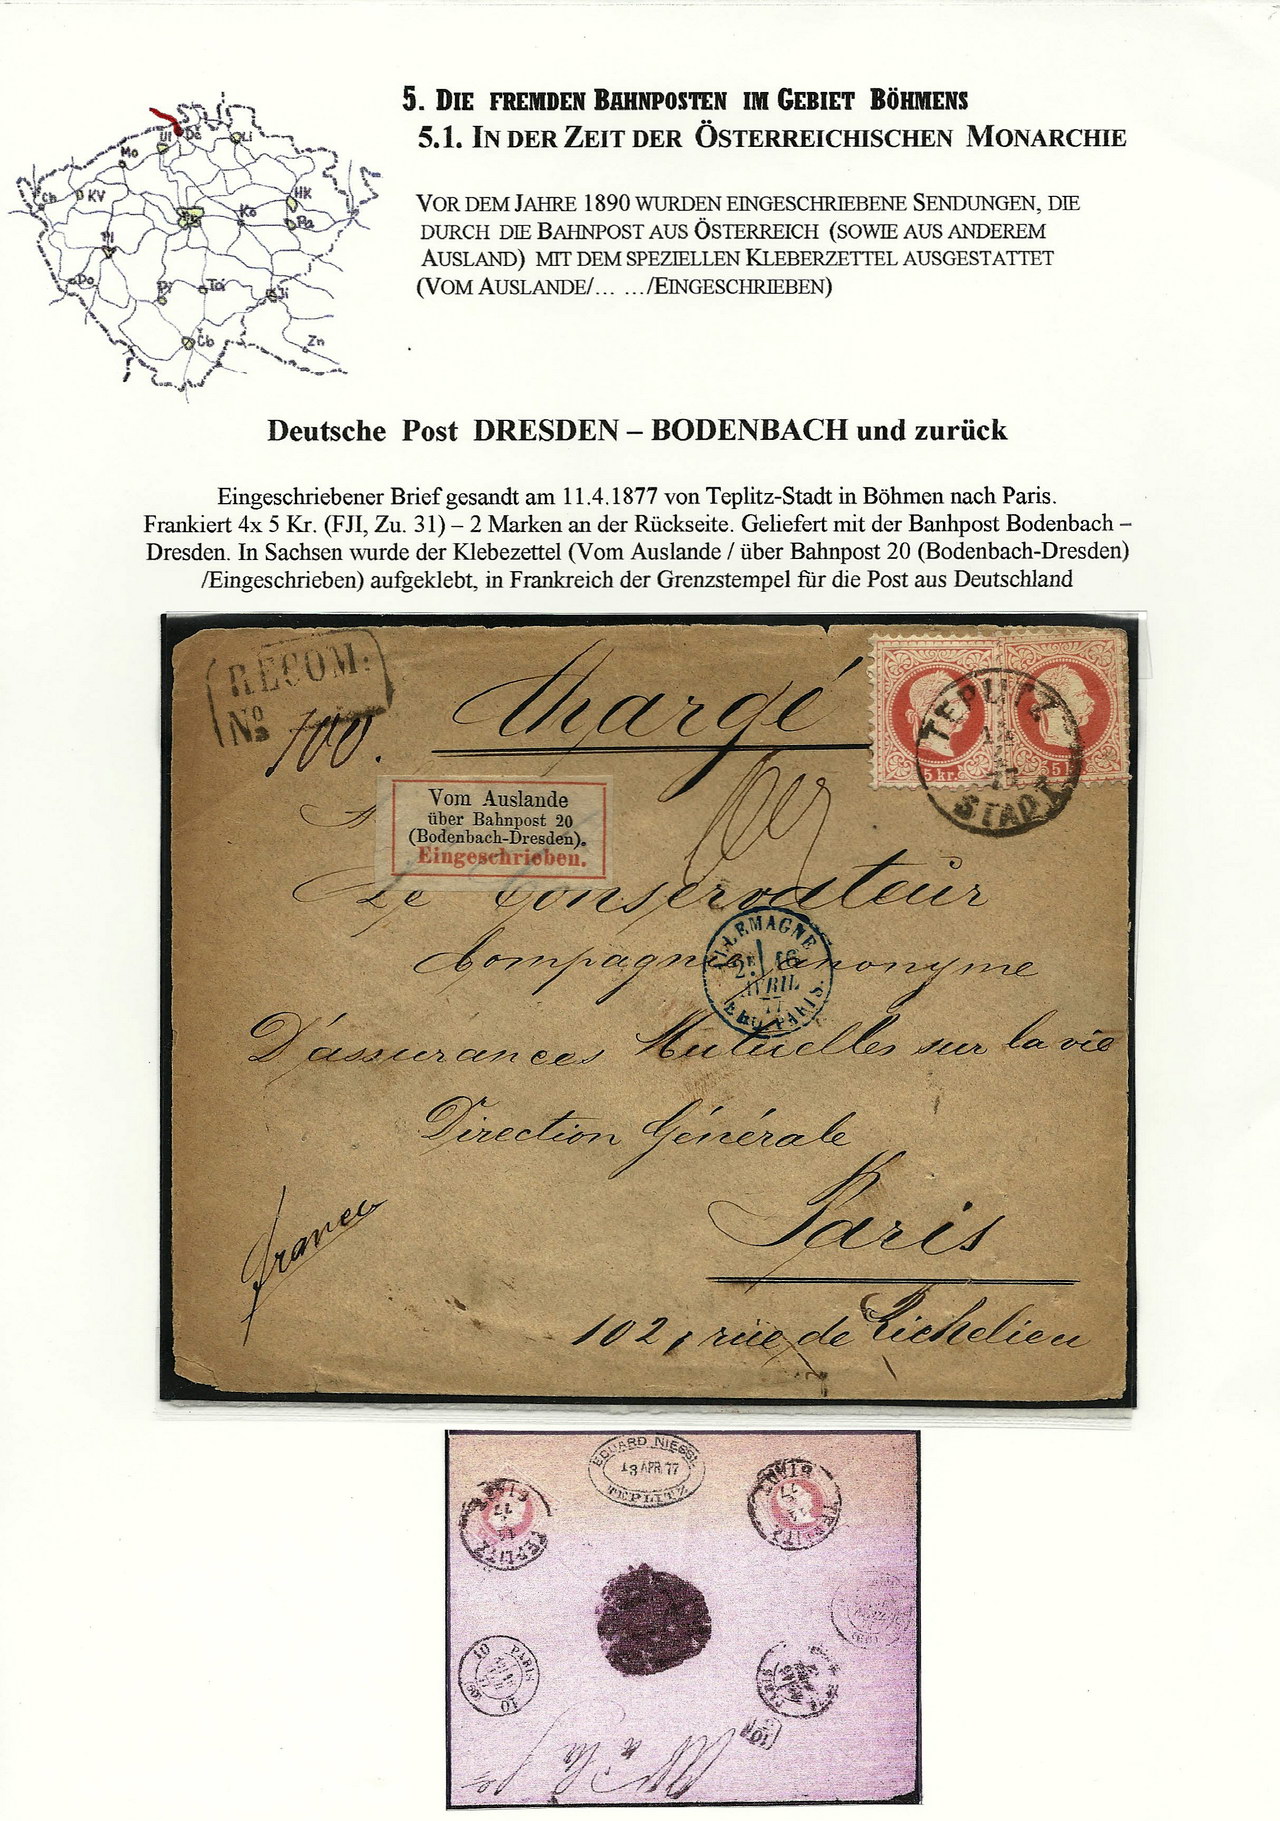 5. DIE FREMDEN BAHNPOSTEN IM GEBIET BÖHMENS
5.1. IN DER ZEIT DER ÖSTERREICHISCHEN MONARCHIE
VOR DEM JAHRE 1890 WURDEN EINGESCHRIEBENE SENDUNGEN, DIE
DURCH DIE BAHNPOST AUS ÖSTERREICH (SOWIE AUS ANDEREM
AUSLAND) MIT DEM SPEZIELLEN KLEBERZETTEL AUSGESTATTET
(VOM AUSLANDE/... .../EINGESCHRIEBEN)
Ul Dč Li
Mo
Ch KV HK
Ko Pa
Pl
Do Pi Tá Ji
Čb Zn
Deutsche Post DRESDEN – BODENBACH und zurück
Eingeschriebener Brief gesandt am 11.4.1877 von Teplitz-Stadt in Böhmen nach Paris.
Frankiert 4x 5 Kr. (FJI, Zu. 31) – 2 Marken an der Rückseite. Geliefert mit der Banhpost Bodenbach –
Dresden. In Sachsen wurde der Klebezettel (Vom Auslande / über Bahnpost 20 (Bodenbach-Dresden)
/Eingeschrieben) aufgeklebt, in Frankreich der Grenzstempel für die Post aus Deutschland
RECOM:
No 100.
Chargé
5 kr. 5 k
TEPLITZ
STADT
Vom Auslande
über Bahnpost 20
(Bodenbach-Dresden).
Eingeschrieben.
Le Conservateur
Compagnie anonyme
ALLEMAGNE
2E 16
AVRIL
77
PARIS
D'assurances Mutuelles sur la vie
Direction Générale
Paris
franco
102, rue de Richelieu
EDUARD NIESSL
13 APR. 77
TEPLITZ
TEPLITZ STADT
TEPLITZ STADT
PARIS
10 10
60
PARIS